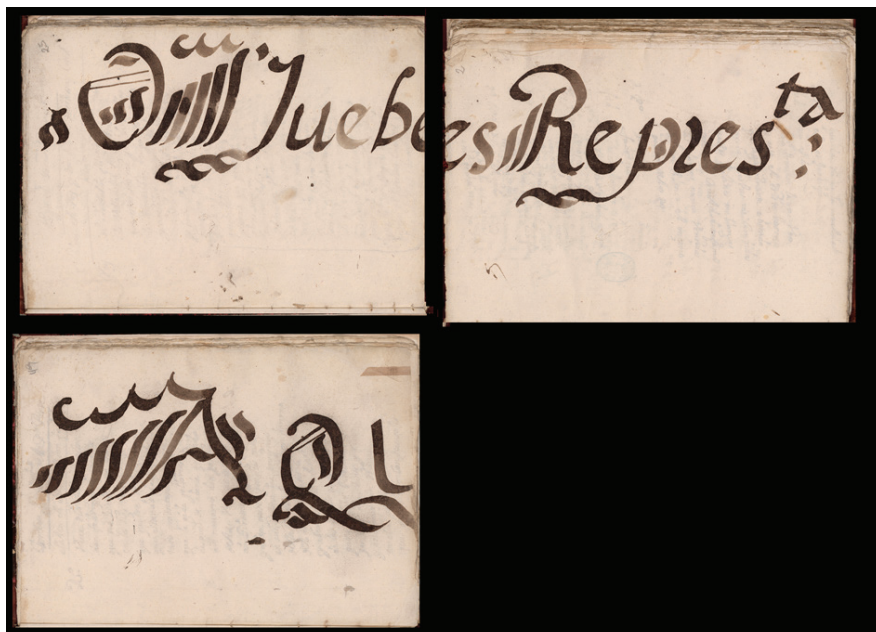 Juebes Repres^ta
A Q